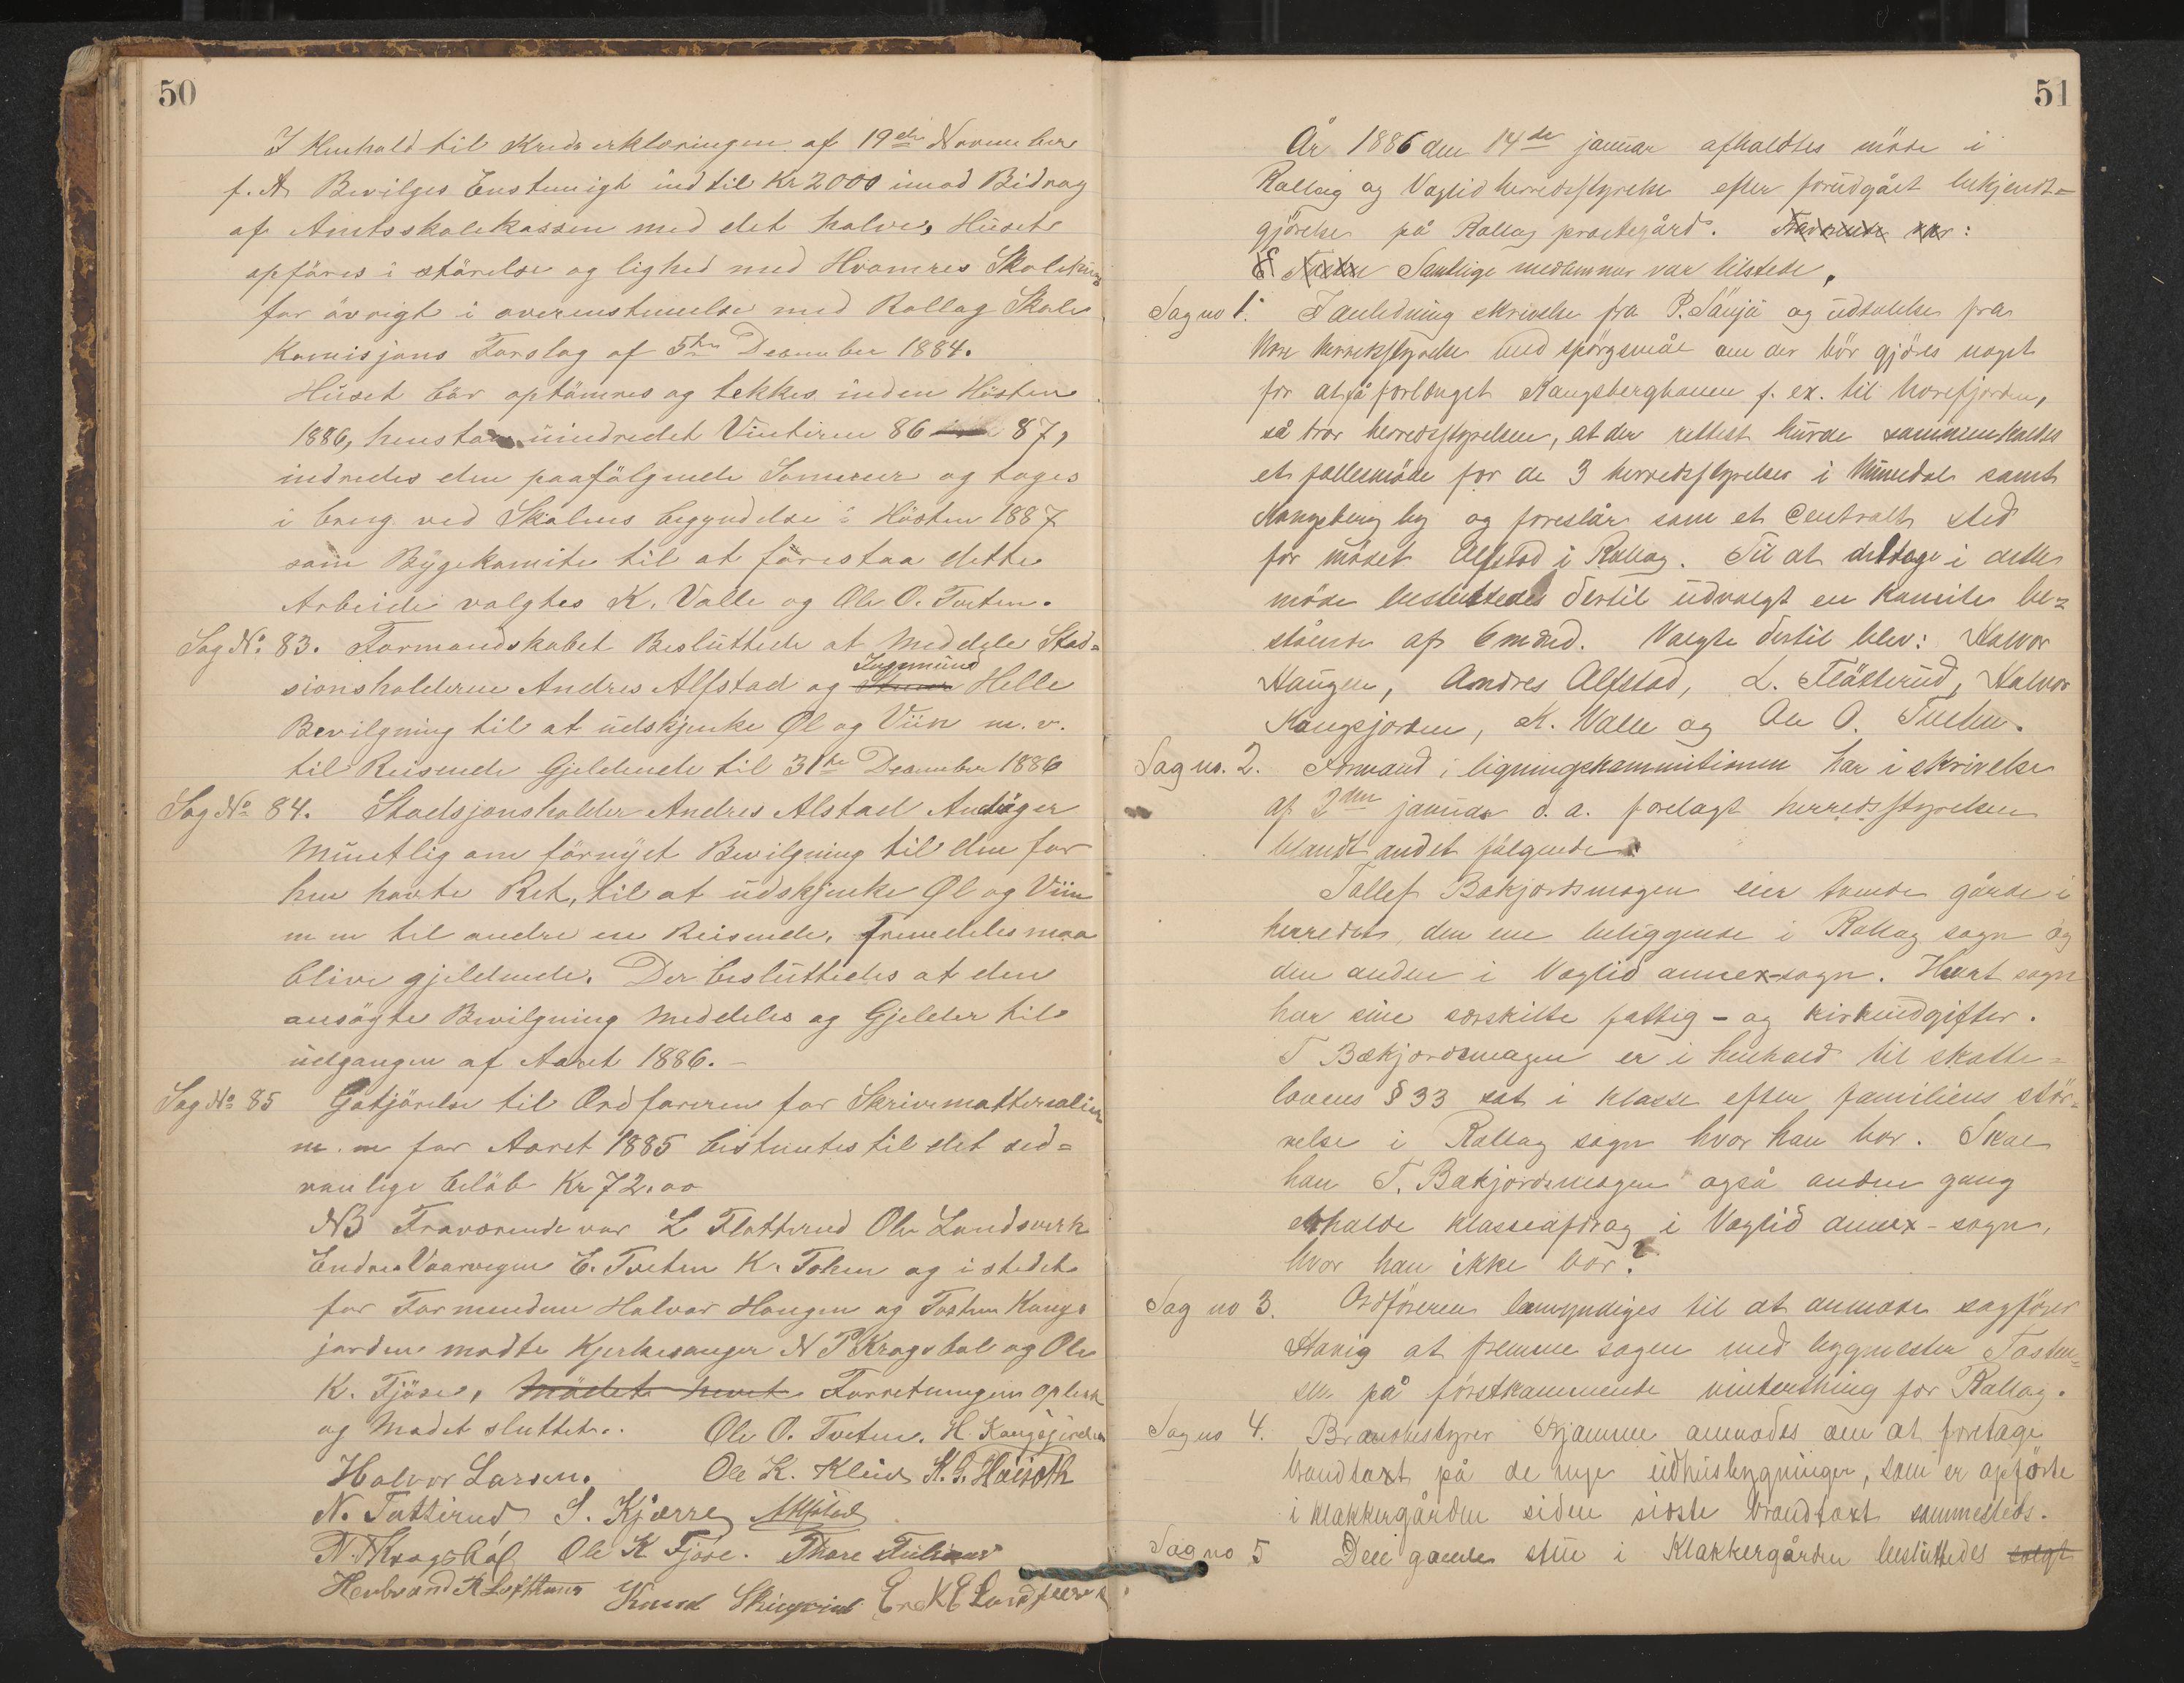 50
I Henhold til Kredserklæringen af 19de November
f. A. Bevilges Enstemigt indtil Kr 2000 imod Bidrag
af Amtsskolekassen med det halve, Huset
opføres i størelse og lighed med Hvamres
for øvrigt i overenstemelse med Rollag Skole
Komisjons Forslag af 5te December 1884.
Huset bør optømres og tekkes inden Høsten
1886, henstaa uindredet Vinteren 86 87,
indredes den paafølgende Sommer og tages
i brug ved Skolens begyndelse i Høsten 1887
som Bygekomite til at førestaa dette
Arbeide valgtes K. Valle og Ole O. Tveten.
Sag No. 83. Formandskabet Besluttede at Meddele Stad=
Ingemund
sionsholderne Andres Alfstad og Helle
Bevilgning til at udskjenke Øl og Viin m. v.
til Reisende Gjeldende til 31te December 1886
Sag No 84. Stadsjonsholder Andres Alstad Andøger
Muntlig om førnyet Bevilgning til den før
hen havte Ret, til at udskjenke Øl og Viin
m m til andre en Reisende, fremdeles maa
blive gjeldende. Der besluttedes at den
ansøgte Bevilgning Meddeles og Gjelder til
udgangen af Aaret 1886. –
Sag No 85 Gotjørelse til Ordføreren for Skrivematterealier
m. m for Aaret 1885 bestemtes til det sed=
vanlige beløb Kr 72.00
NB Fraværende var L Fløtterud Ole Landsverk
Endre Vaarvegen E. Tveten K. Tohen og i stedet
for Formendene Halvor Haugen og Tosten Kongs
jorden mødte Kjerkesanger N P Kragsbal og Ole
K. Fjøse, Mødet hevet Forretningen oplæst
og Mødet sluttet.. Ole O. Tveten. H. Kongsjorden
Halvor Larsen. Ole K. Kleiv K. G. Høiseth
N. Tutterud S. Kjærre AAlfstad
N. PKragsbal Ole K Fjøse. Thore
Herbrand K Lofthuus Knud Erik E Landsverk
51
År 1886 den 14de januar afholdtes møde i
Rollag og Væglid herredsstyrelse efter forudgået bekjendt=
gjørelse på Rollag præstegård. Fraværende var:
Samtlige medlemmer var tilstede.
Sag no 1. I anledning skrivelse fra P. Sønjù og udtalelse fra
Nore herredsstyrelse med spørgsmål om der bør gjøres noget
for at få forlænget Kongsbergbanen f. ex. til Norefjorden,
så tror herredsstyrelsen, at der rettest burde sammenkaldes
et fællesmøde for de 3 herredsstyrelser i Numedal samt
Kongsberg by og foreslår som et centralt sted
for mødet Alfstad i Rollag. Til at deltage i dette
møde besluttedes dertil udvalgt en komite be=
stående af 6 mænd. Valgte dertil blev: Halvor
Haugen, Andres Alfstad, L. Fløtterud, Halvor
Kongsjorden, K. Valle og Ole O. Tveten.
Sag no. 2. Formand i ligningskommitionen har i skrivelse
af 2den januar d. a. forelagt herredsstyrelsen
blandt andet følgende:
Tollef Bækjordsmogen eier tvende gårde i
herredet, den ene beliggende i Rollag sogn og
den anden i Væglid annex-sogn. Hvert sogn
har sine særskilte fattig- og kirkeudgifter.
T Bækjordsmogen er i henhold til skatte=
lovens § 33 sat i klasse efter familiens stør=
relse i Rollag sogn hvor han bor. Skal
han T. Bækjordsmogen også anden gang
erholde klasseafdrag i Væglid annex-sogn,
hvor han ikke bor?
Sag no 3. Ordføreren bemyndiges til at anmode sagfører
at fremme sagen med bygmester Tosten=
sen på førstkommende vinterthing for Rollag.
Sag no 4. Brandbestyrer Bjamme anmodes om at foretage
brandtaxt på de nye udhusbygninger, som er opførte
i Klakkergården siden sidste brandtaxt sammesteds.
Sag no 5 Den gamle stue i Klakkergården besluttedes solgt